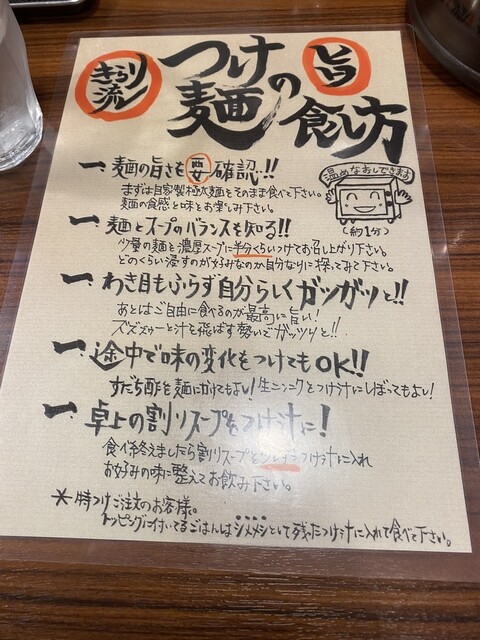 きらり流
つけ麺の旨い食し方
温めなおしできます
(約1分)
一、麺の旨さを要確認!!
まずは自家製極太麺をそのまま食べて下さい。
麺の食感と味をお楽しみ下さい。
一、麺とスープのバランスを知る!!
少量の麺を濃厚スープに半分くらいつけてお召し上がり下さい。
どのくらい浸すのが好みなのか自分なりに探ってみて下さい。
一、わき目もふらず自分らしくガツガツと!!
あとはご自由に食べるのが最高に旨い!
ズズズゥーと汁を飛ばす勢いでガッツリと!!
一、途中で味の変化をつけてもOK!!
すだち酢を麺にかけてもよい!生ニンニクをつけ汁にしぼってもよい!
一、卓上の割りスープをつけ汁に!
食べ終えましたら割りスープを つけ汁に入れ
お好みの味に整えてお飲み下さい。
*特つけご注文のお客様。
トッピングに付いてるごはんはシメメシとして残ったつけ汁に入れて食べて下さい。